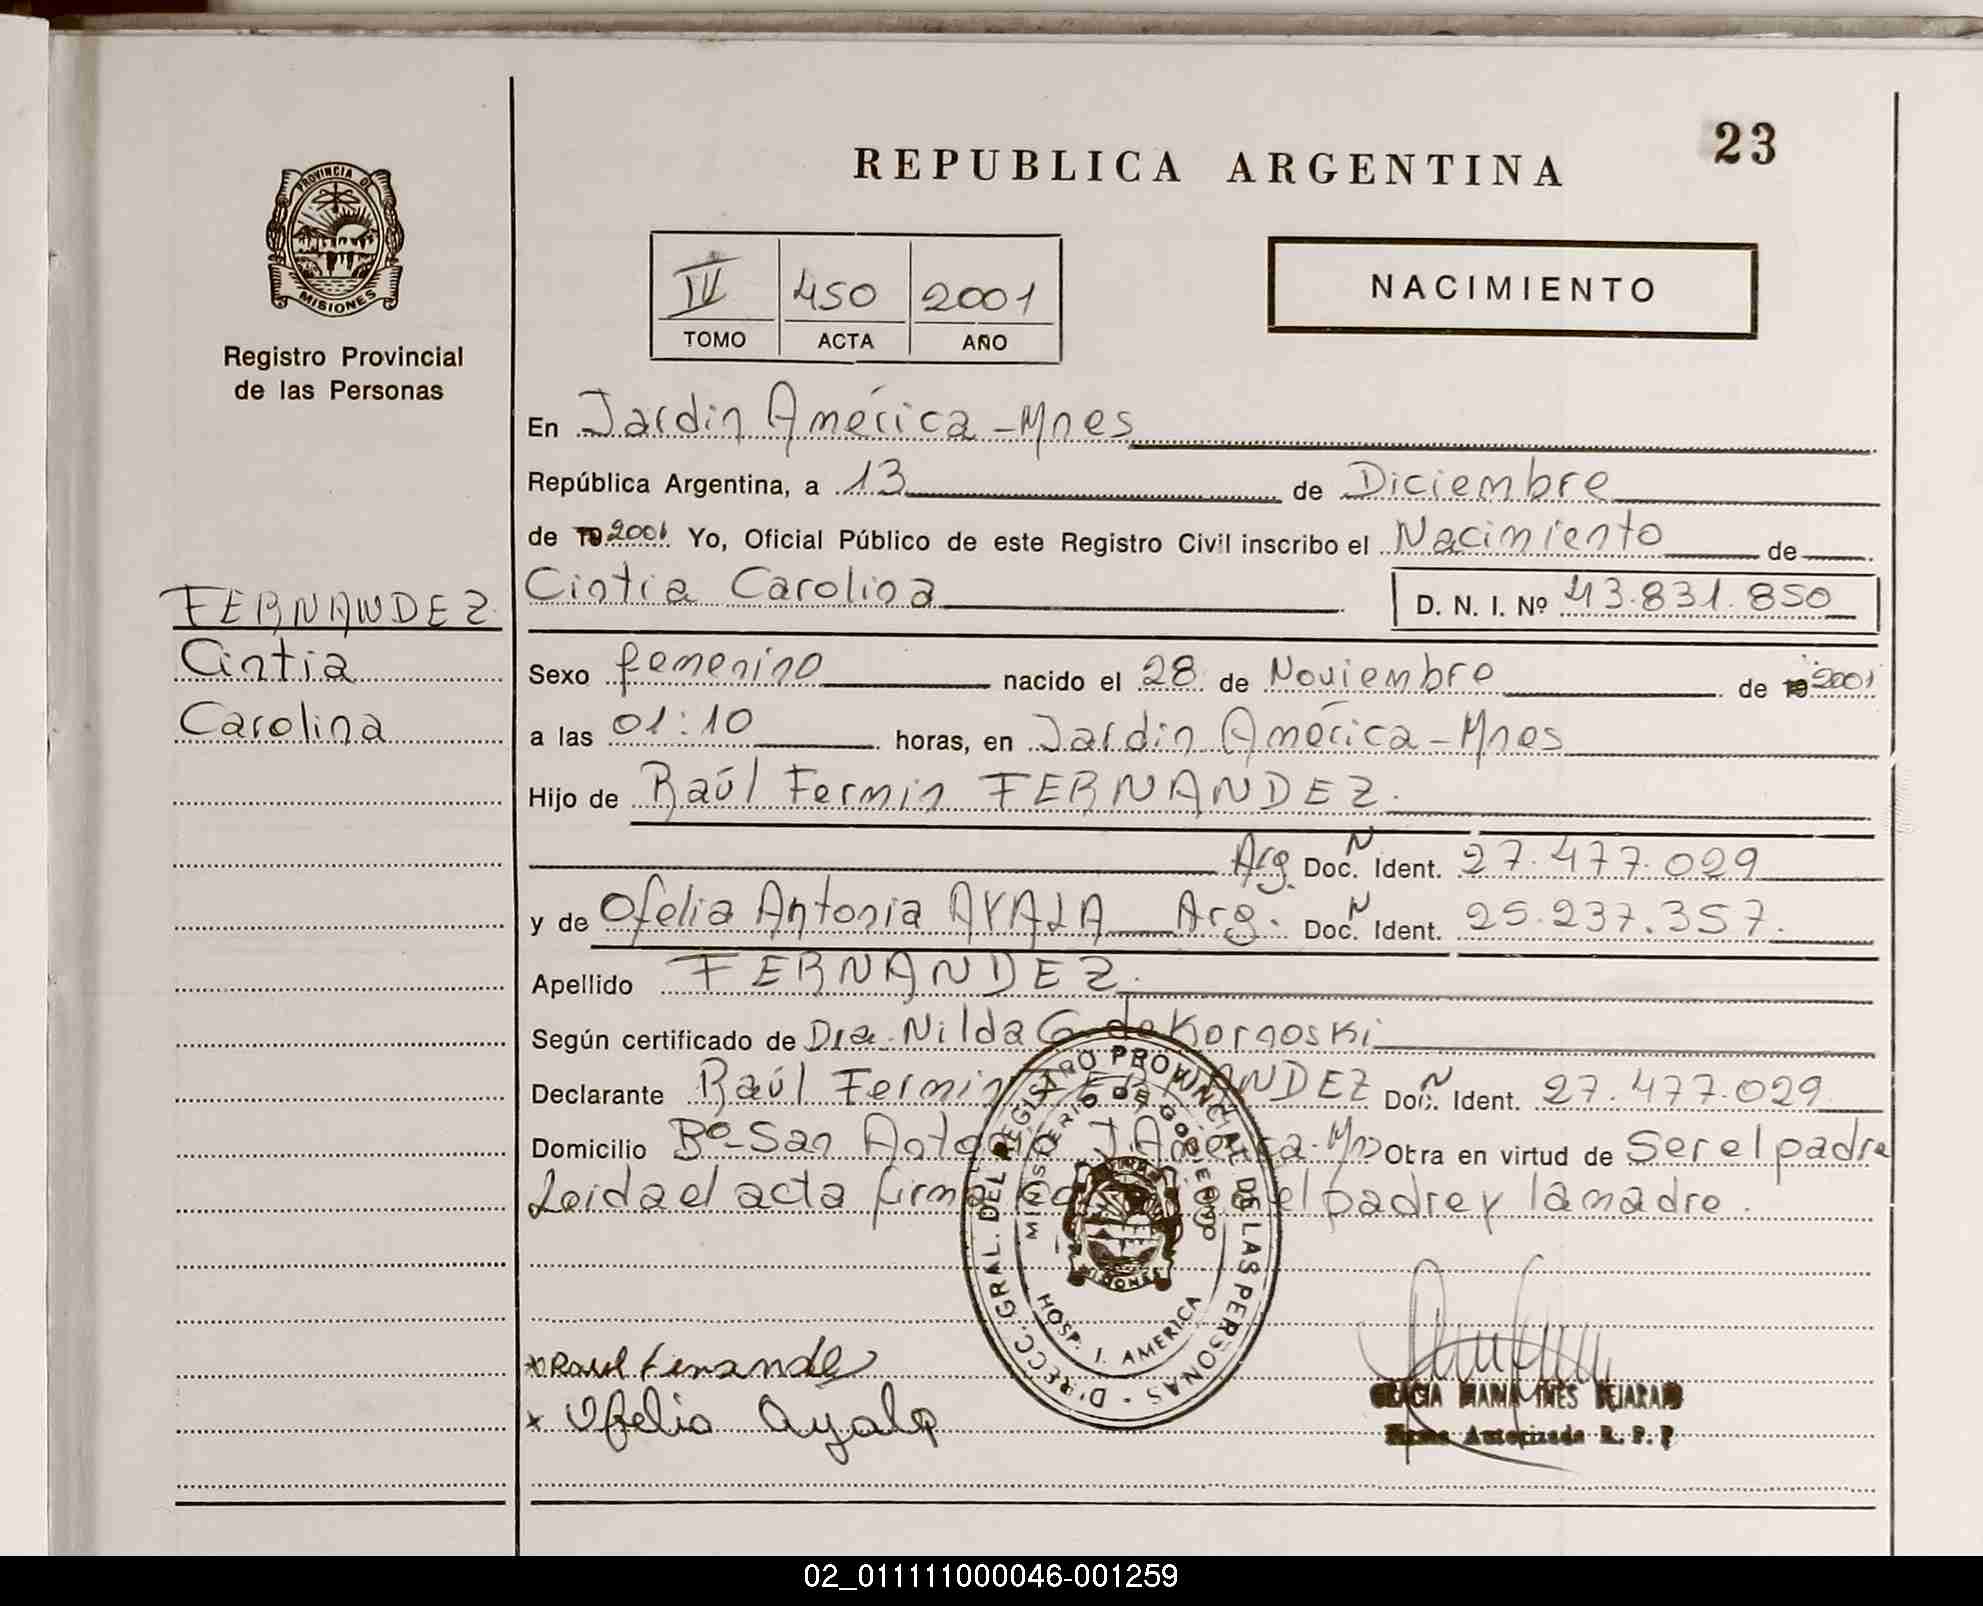 REPUBLICA ARGENTINA
23
PROVINCIA DE
MISIONES
Registro Provincial
de las Personas
IV 450 2001
TOMO ACTA AÑO
NACIMIENTO
En Jardin América - Mnes
República Argentina, a 13 de Diciembre
de 19 2001 Yo, Oficial Público de este Registro Civil inscribo el Nacimiento de
FERNANDEZ
Cintia
Carolina
Cintia Carolina D. N. I. Nº 43.831.850
Sexo femenino nacido el 28 de Noviembre de 19 2001
a las 01:10 horas, en Jardin América - Mnes
Hijo de Raúl Fermin FERNANDEZ.
Arg. Doc. N Ident. 27.477.029
y de Ofelia Antonia AYALA Arg. Doc. N Ident. 25.237.357.
Apellido FERNANDEZ.
Según certificado de Dra. Nilda G de Kornoski
Declarante Raúl Fermin FERNANDEZ Doc. N Ident. 27.477.029
Domicilio Bº - San Antonio J. América - Mn Obra en virtud de Ser el padre
Leida el acta firma el padre y la madre.
DIRECC. GRAL. DEL REGISTRO PROVINCIAL DE LAS PERSONAS
MINISTERIO DE GOBIERNO
MISIONES
HOSP. J. AMERICA
x Raul Fernande
x Ofelia Ayala
MARIA INES BEJARANO
Firma Autorizada R. P. P
02_011111000046-001259